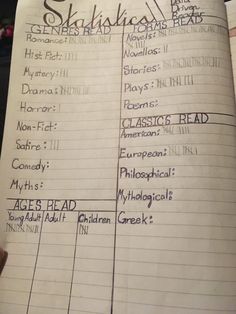 Statistics!!
Data
Driven
Reader
GENRES READ
Romance:
Hist Fict:
Mystery:
Drama:
Horror:
Non-Fict:
Satire:
Comedy:
Myths:
FORMS READ
Novels:
Novellas:
Stories:
Plays:
Poems:
CLASSICS READ
American:
European:
Philosophical:
Mythological:
Greek:
AGES READ
Young Adult
Adult
Children